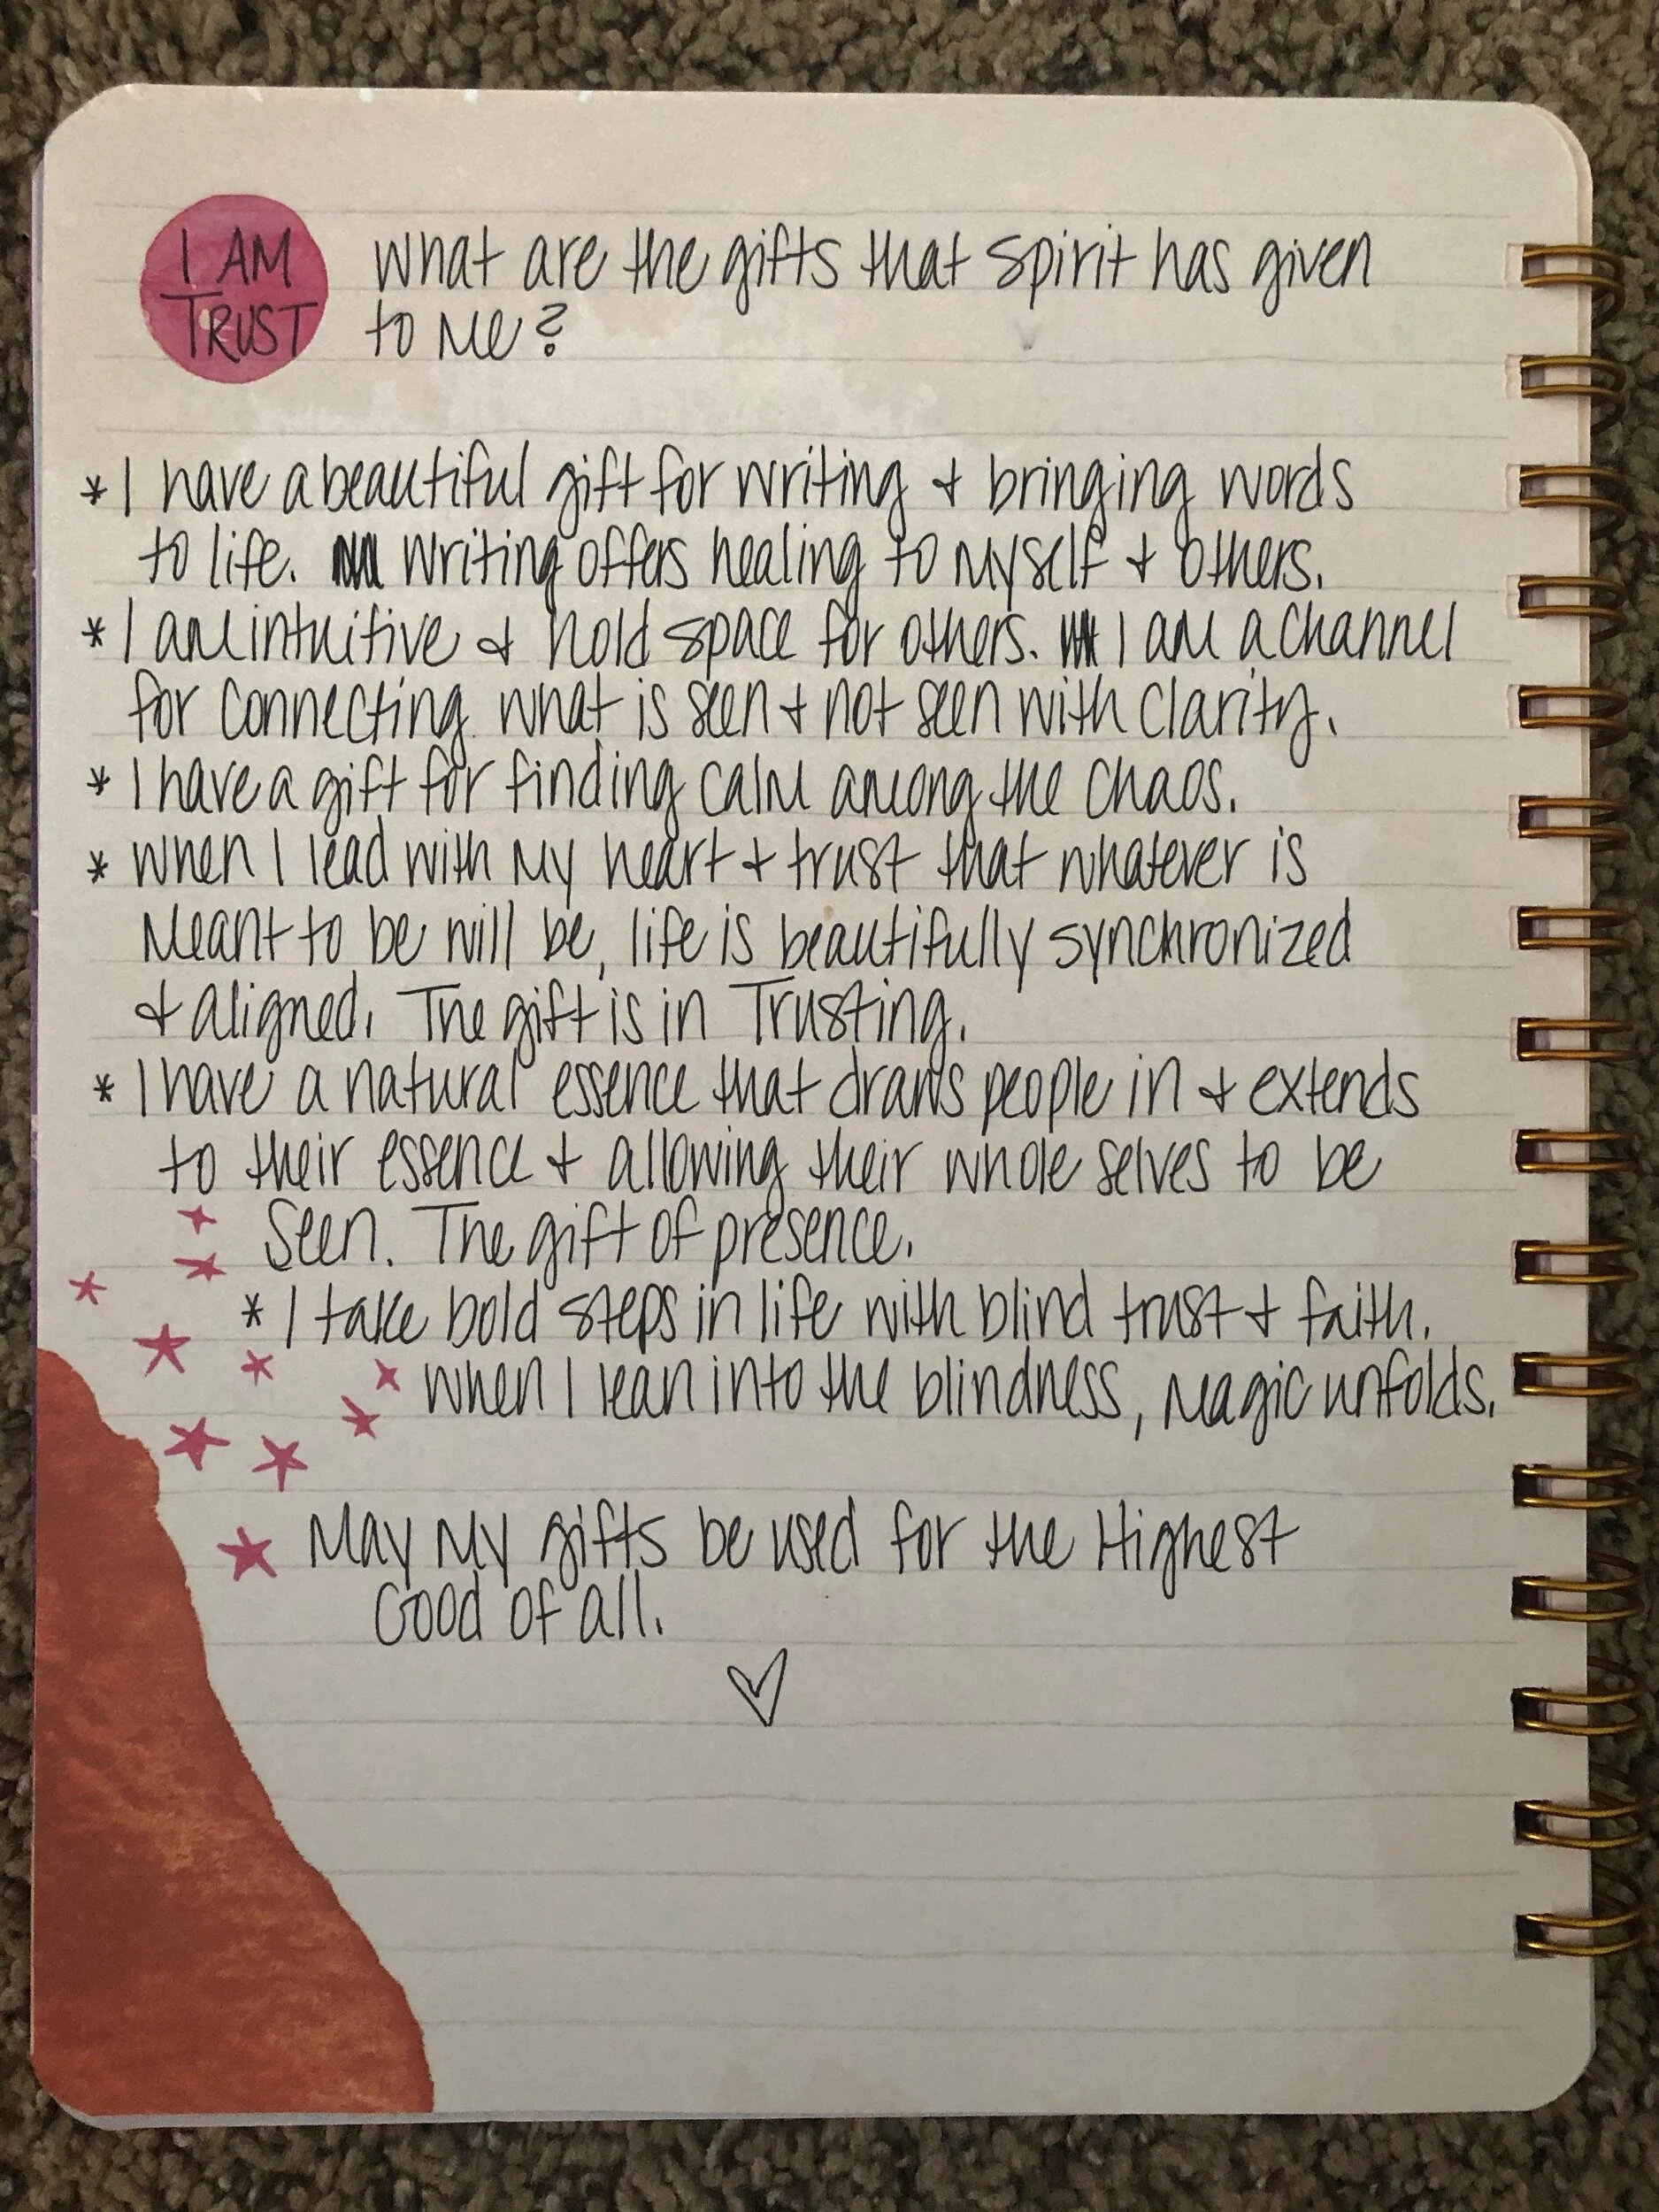 I AM
TRUST
What are the gifts that Spirit has given
to me?
* I have a beautiful gift for writing + bringing words
to life. Writing offers healing to myself + others.
* I am intuitive + hold space for others. I am a channel
for connecting what is seen + not seen with clarity.
* I have a gift for finding calm among the chaos.
* When I lead with my heart + trust that whatever is
meant to be will be, life is beautifully synchronized
+ aligned. The gift is in Trusting.
* I have a natural essence that draws people in + extends
to their essence + allowing their whole selves to be
seen. The gift of presence.
* I take bold steps in life with blind trust + faith.
When I lean into the blindness, magic unfolds.
May my gifts be used for the Highest
Good of all.